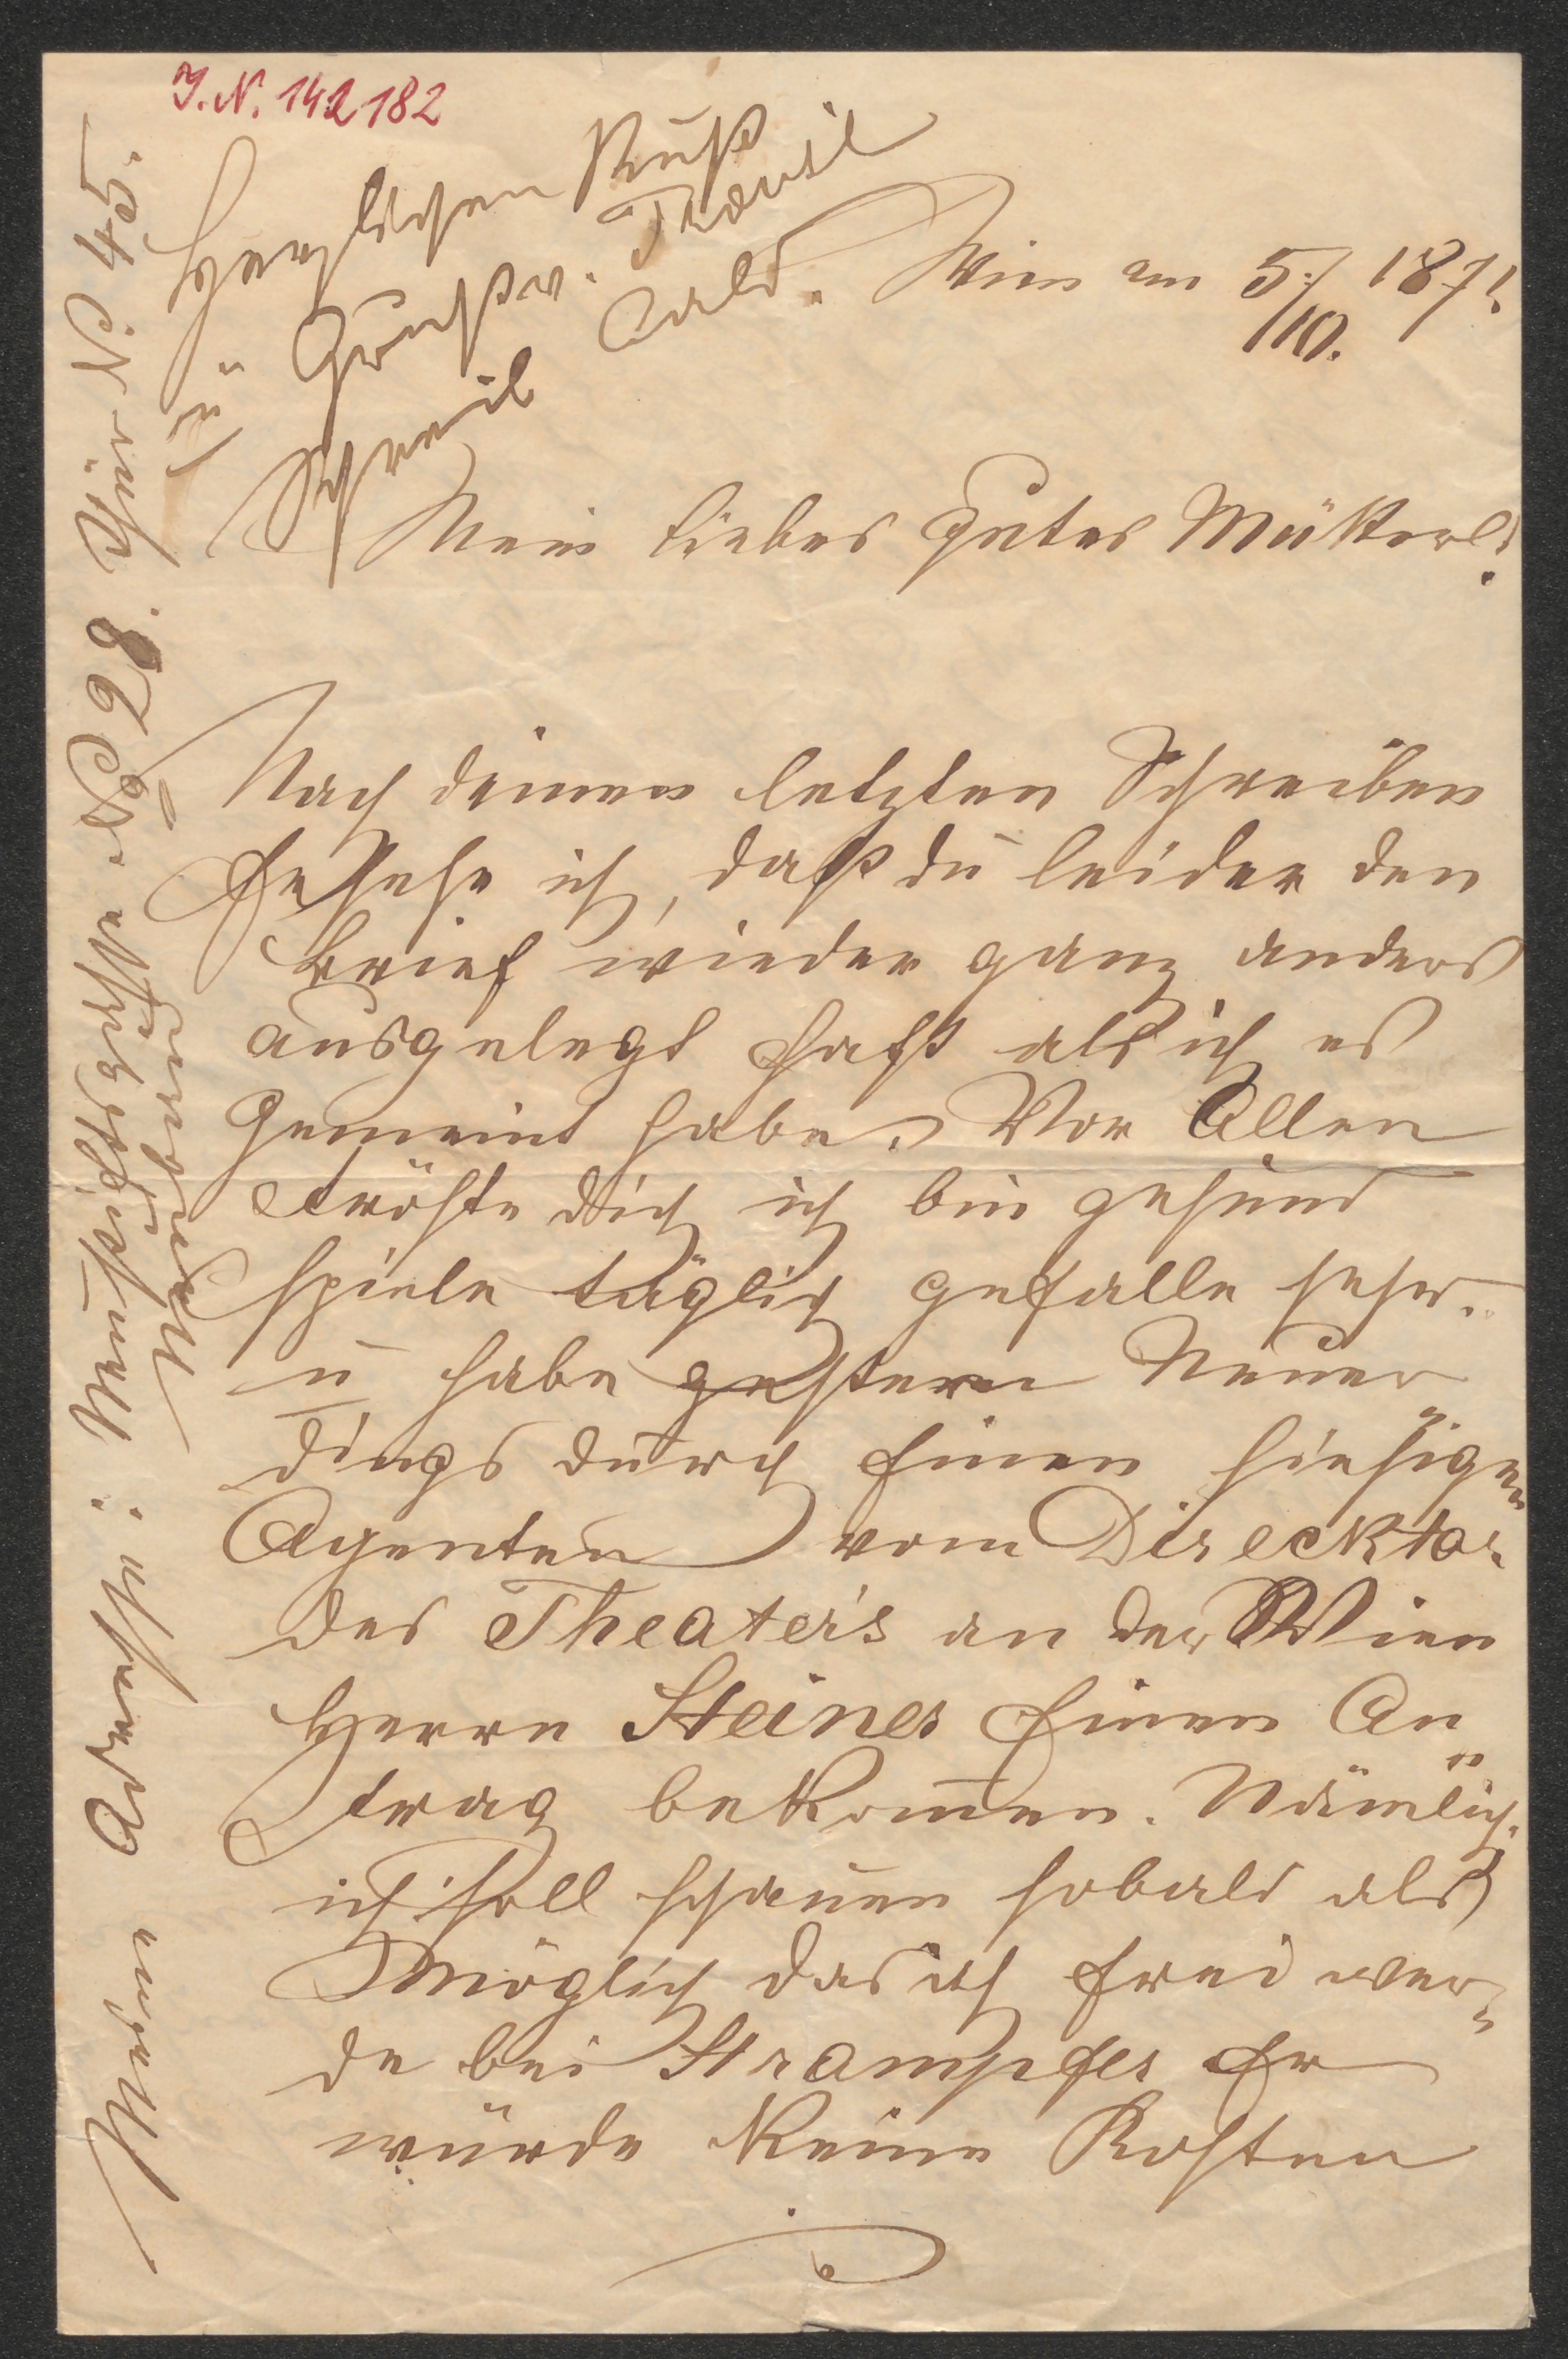 J. N. 142182
Herzlichen Kuß
u Gruß v. Trautl
Schreib bald.
Wien am 5./10. 1871.
Mein liebes gutes Mütterl!
Nach deinen letzten Schreiben
ersehe ich, daß du leider den
Brief wieder ganz anders
ausgelegt hast als ich es
gemeint habe. Vor Allen
tröste dich ich bin gesund
spiele täglich gefalle sehr.
u habe gestern Neuer
dings durch einen hiesigen
Agenten vom Direcktor
des Theater's an der Wien
Herrn Steiner einen An„
trag bekommen. Nämlich
ich soll schauen sobald als
Möglich das ich frei wer„
de bei Strampfer Er
würde keine Kosten
Meine Adresse: Neustiftgasse N 28.
Thür N: 45.
Neubau